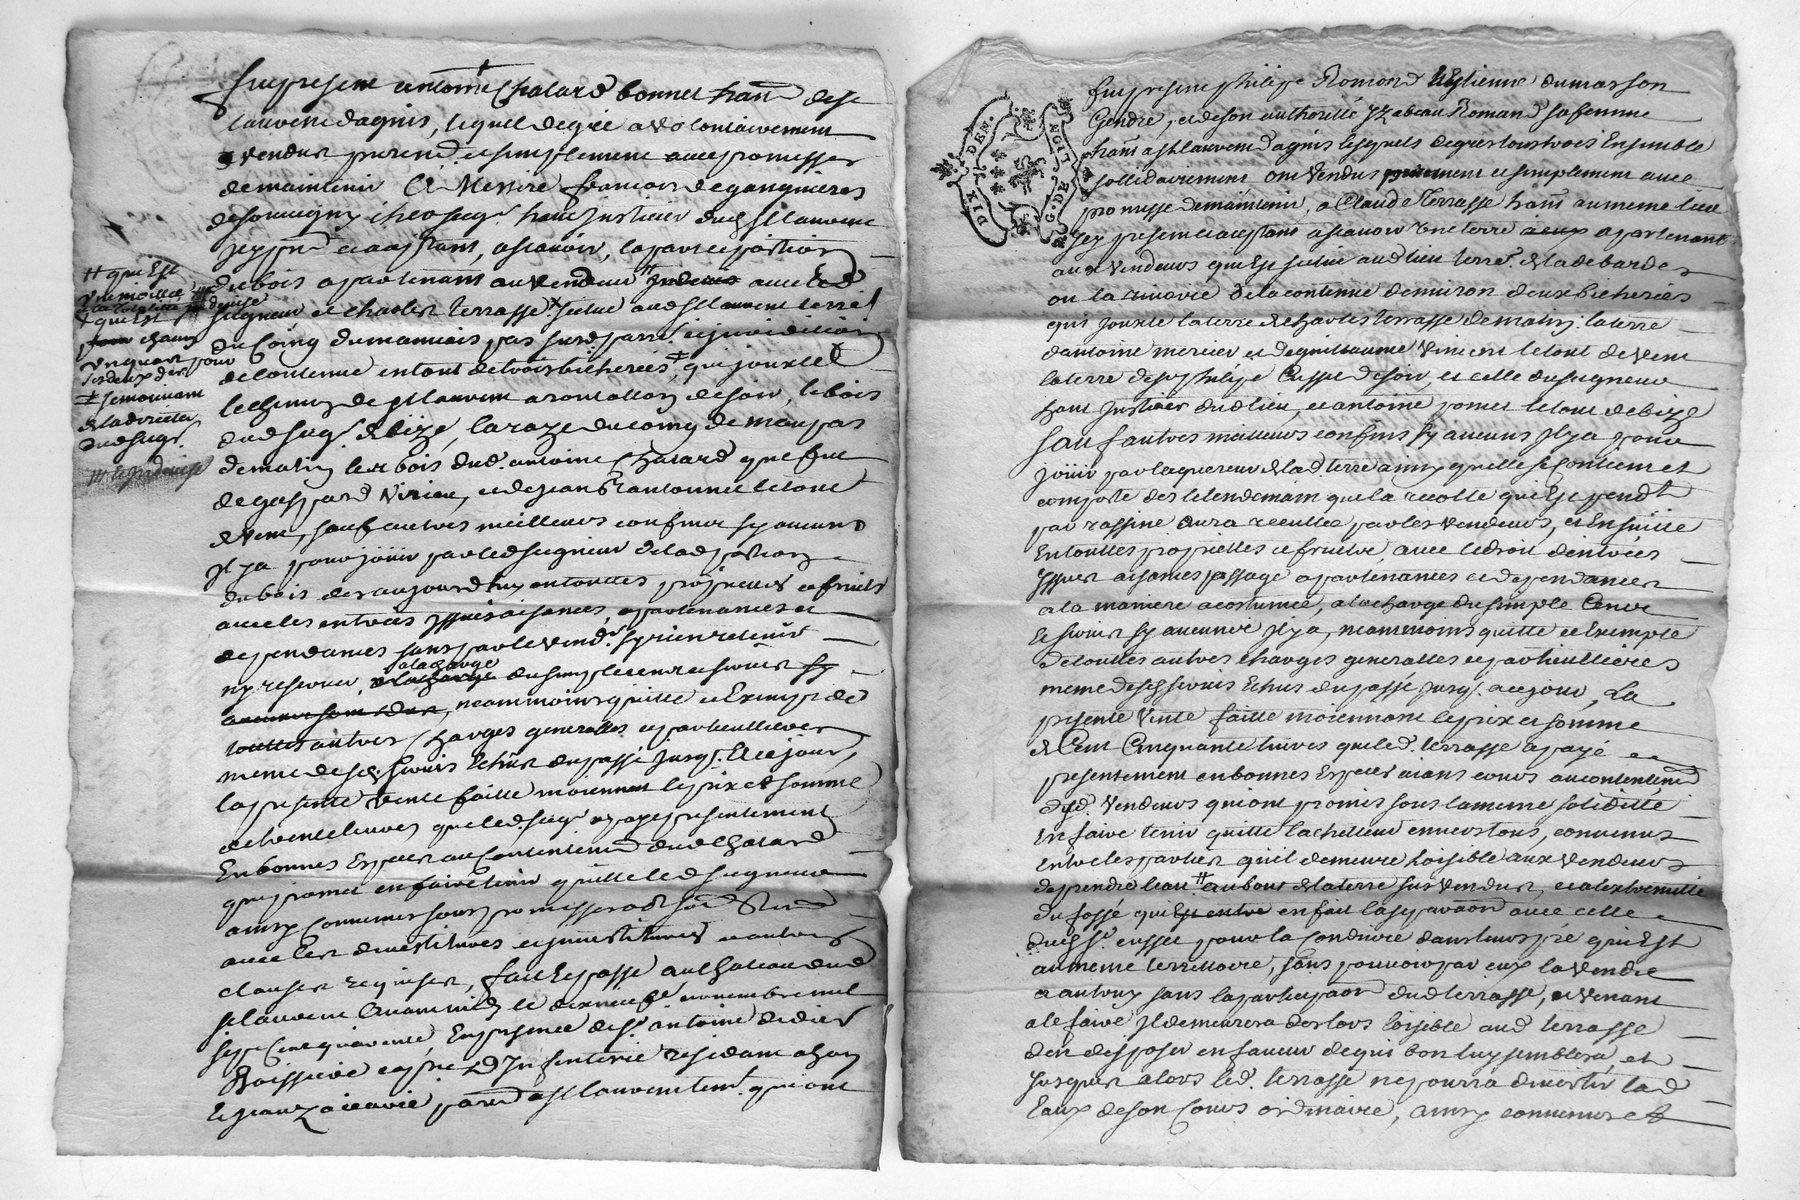 Fut present antoine Chatard bonnet hant de st
lauvent dagnis, lequel de gré a volontairement
vendu purem. et simplement avec promesse
de maintenir A Messire francois de gangnieres
de souvigny seigr haut justicier dud st lauvent
jcy pnt et acceptant, ascavoir, la part et portion
du bois apartenant au vendeur avec led
seigneur et charles terrasse situé aud st lauvent terre
du Coing du mauvais pas susd. parre. et jurisdiction
de contenue en tout de trois bicherées, qui jouxte
le chemin de st lauvent a de soir, le bois
dud seigr de bize, la raze du coing de maupas
de matin le bois dud. antoine Chatard que fut
de gaspard Virieu, et de jean letout
de vent, sauf autres meilleurs confins sy aucuns
jl ya pour jouir par led seigneur de lad portion
du bois des aujourdhuy en touttes proprietés et fruits
avec les entrées jssues aisances, apartenances et
dependances sans par le vendr sy rien retenir
ny reserver, a la charge du simple cens et servis
neammoins quitte et Exempt de
touttes autres Charges generalles et particullieres
meme desd. servis Echus du passé jusq. A ce jour,
la presente vente faitte moiennant le prix et somme
de trente livres que led. seigr a payé presentement
En bonnes Especes au Contentement dud Chatard
qui promet en faire tenir quitte led seigneur
ainsy Convenu sous promesses
avec les devestitures et jnvestitures et autres
clauses requises, fait Et passé au chateau dud
st lauvent avant midy le dix neufe novembre mil
sept Cent quarante, En presence de sr antoine didier
Boissieu capne D'Infanterie residant a
Et jean par aud st lauvent tem. qui ont
# qui Est
une moitié
qui Est
un quart pour
les deux der.
# se mouvant
de la directe
dud seigr.
Fut present philipe Romond et Estienne dumasson
Gendre, et de son authorité Yzabeau Romand sa femme
hants a st lauvent dagnis lesquels de gres tous trois Ensemble
sollidairement ont vendus purement et simplement avec
promesse de maintenir, a Claude terrasse hant au meme lieu
jcy present et aceptant ascavoir une terre a eux apartenant
aux vendeurs qui Est située aud lieu terre. de la debardes
ou la rivoire de la contenue denviron deux bicherées
qui jouxte la terre de charles terrasse de matin. la terre
dantoine mercier et de guillaume vincent letout de vent
la terre de sr philipe Cusset de soir, et celle du seigneur
haut justicier dud lieu, et antoine pomet letout de bize
sauf autres meilleurs confins sy aucuns jl ya pour
jouir par laquereur de lad terre ainsy quelle se contient et
comporte des le lendemain que la recolte qui Est pendte
par rassine sera receuillée par les vendeurs, et Ensuitte
En touttes proprietes et fruits avec le droit dentrées
jssues aisances passage apartenances et dependances
a la maniere acostumée, a la charge du simple Cens
Et servis sy aucun jl ya, neammoins quitte et Exempte
de touttes autres charges generalles et particullieres
meme desd. servis Echus du passé jusq. a ce jour, La
presente vente faitte moiennant le prix et somme
de Cent Cinquante livres que led. terrasse a payé
presentement en bonnes Especes aians cours au contentemt
desd. vendeurs qui ont promis sous la meme soliditté
en faire tenir quitte lacheteur envers tous, convenus
entre les parties quil demeure Loisible aux vendeurs
de prendre leau # au bout de la terre sus vendue, et a lextremité
du fossé qui Est entre en fait la separaon avec celle
dud sr. cusset pour la Conduire dans leurs pré qui Est
au meme territtoire, sans pouvoir par eux la vendre
a autruy sans la participaon dud terrasse, et venant
a le faire jl demeurera des lors loisible aud terrasse
den disposer en faveur de qui bon luy semblera, et
jusques alors led. terrasse ne pourra divertir lad
Eaux de son Cours ordinaire, ainsy convenus et
DIX DEN.
G. DE